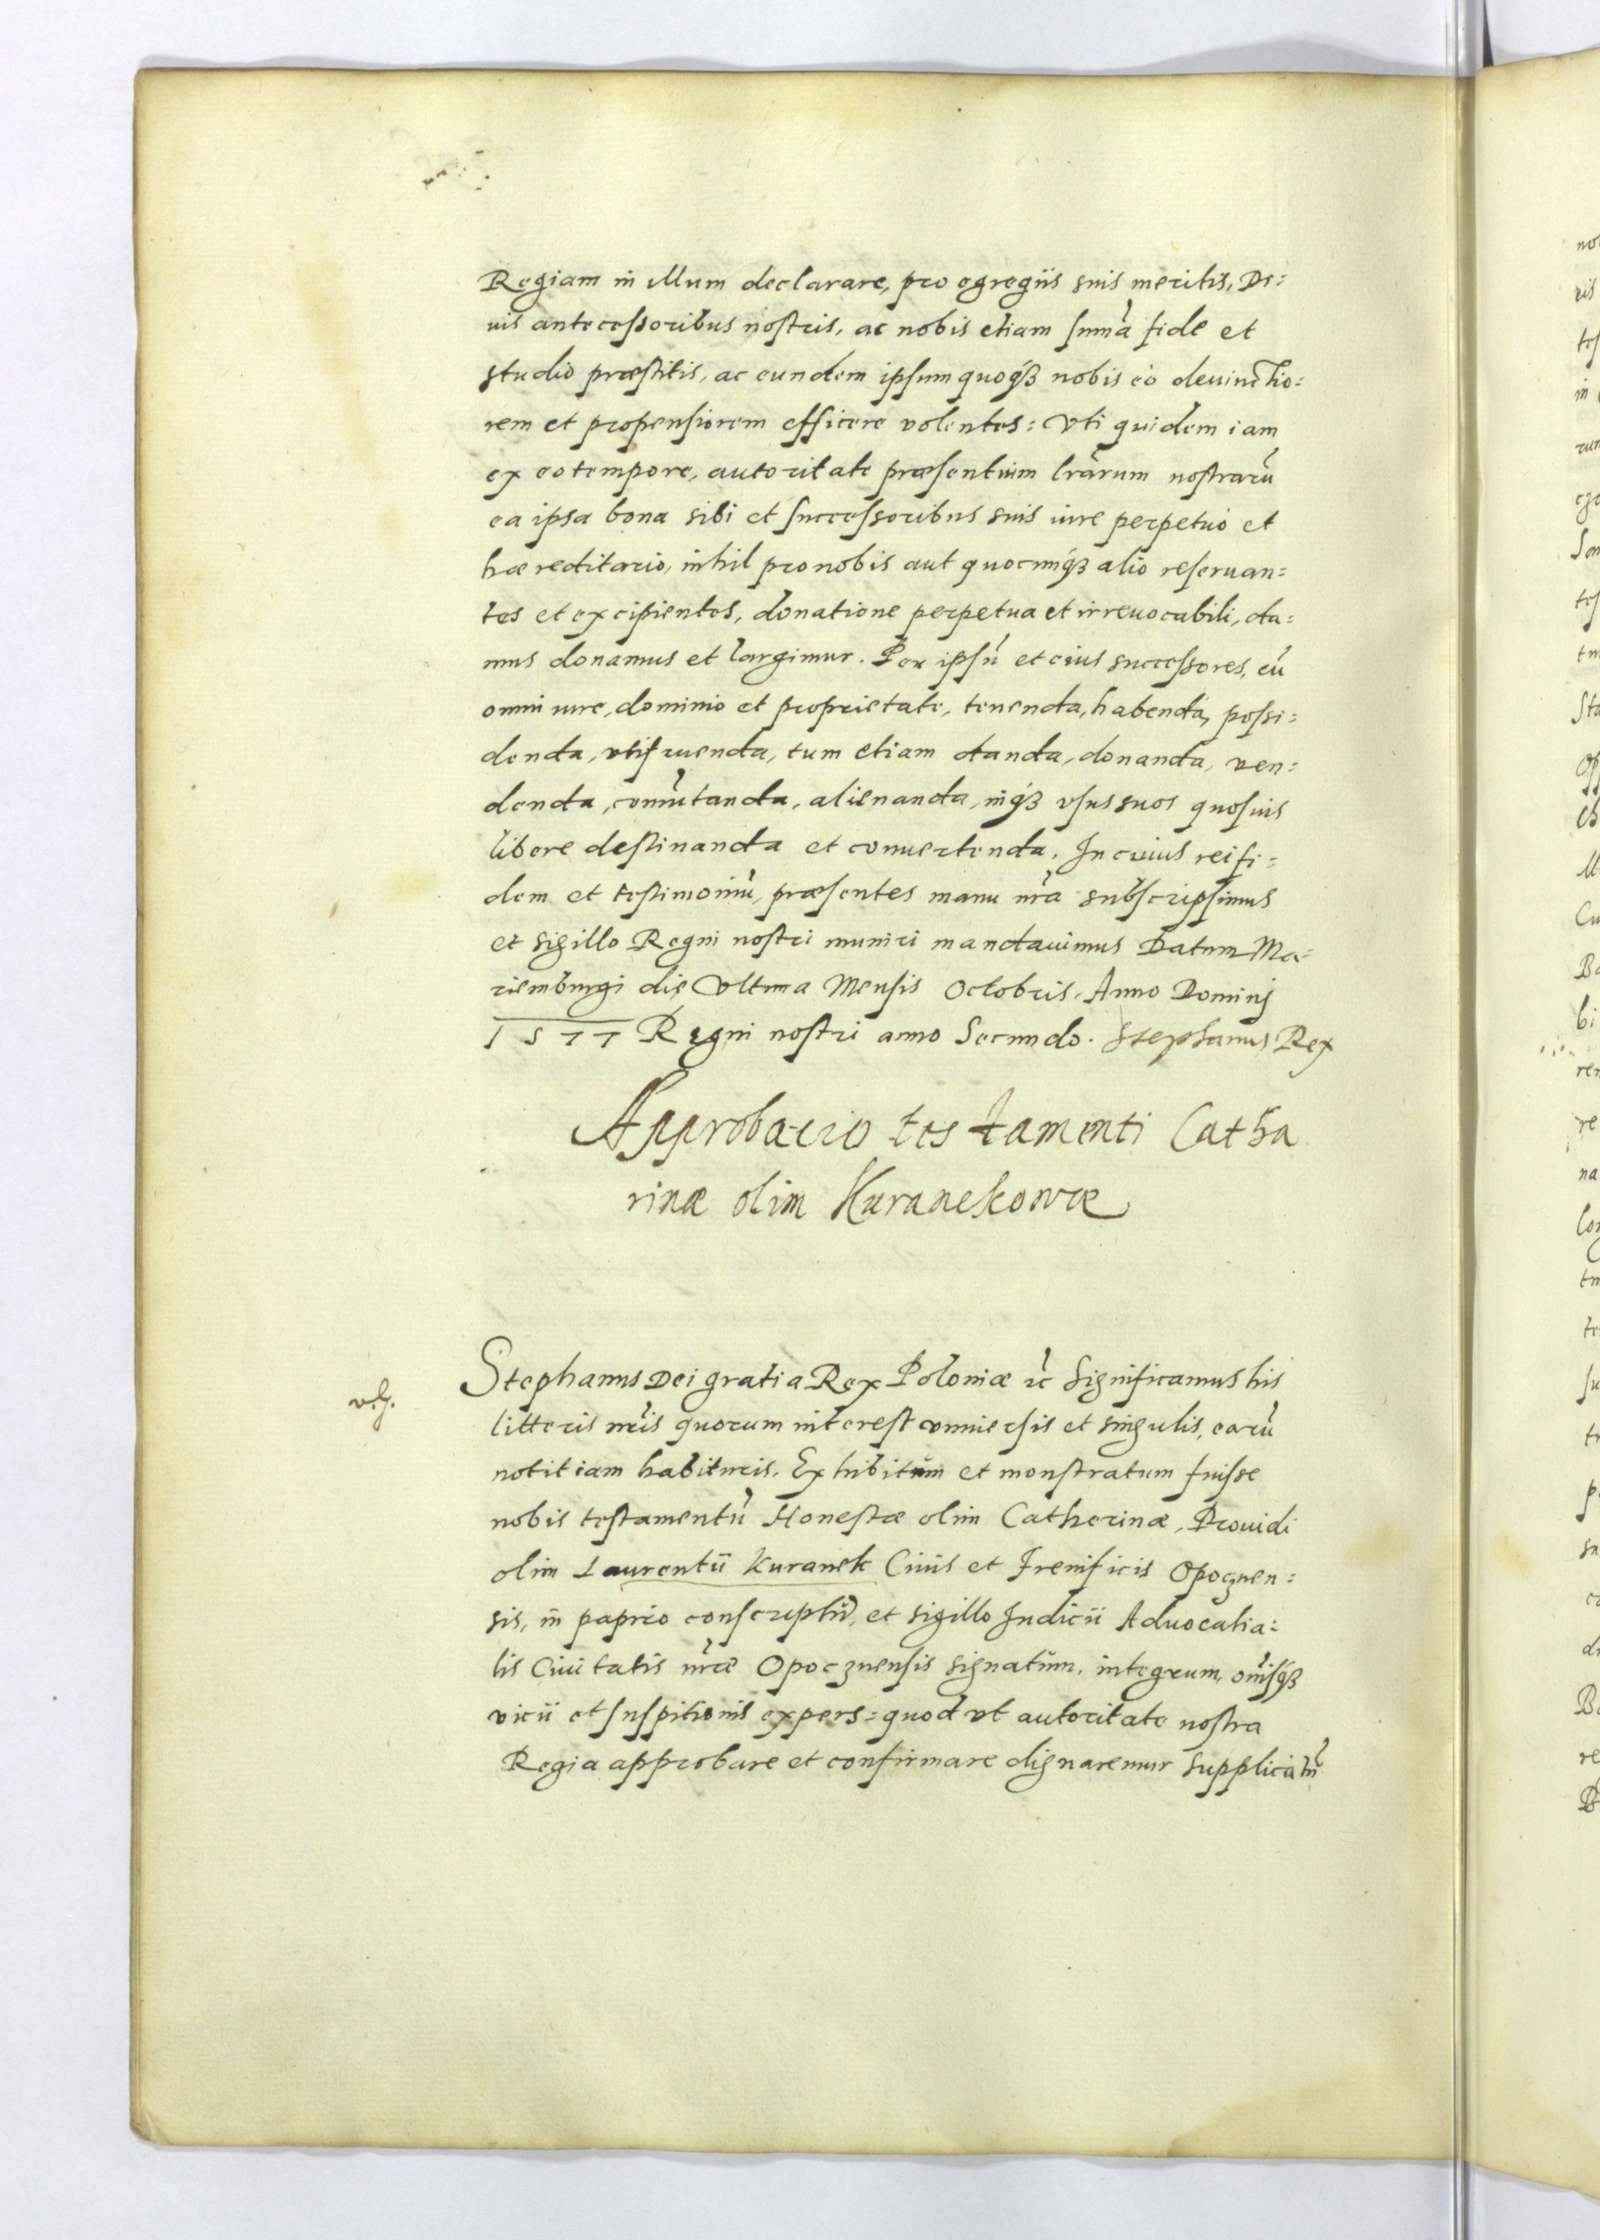 Regiam in illum declarare, pro egregiis suis meritis, Di=
uis antecessoribus nostris, ac nobis etiam sum̃a fide et
studio præstitis, ac eundem ipsum quoq́ȝ nobis eò deuinctio=
rem et propensiorem efficere volentes: Vti quidem iam
ex eo tempore, autoritate præsentium lrãrum nostrarũ
ea ipsa bona sibi et successoribus suis iure perpetuò et
hæreditario, nihil pro nobis aut quocunq́ȝ alio reseruan=
tes et excipientes, donatione perpetua et irreuocabili, da=
mus donamus et largimur. Per ipsũ et eius successores, cũ
omni iure, dominio et proprietate, tenenda, habenda, possi=
denda, vtifruenda, tum etiam danda, donanda, ven=
denda, com̃utanda, alienanda, inq́ȝ vsus suos quosuis
libere destinanda et conuertenda. In cuius rei fi=
dem et testimoniũ, præsentes manu nrã subscripsimus
et sigillo Regni nostri muniri mandauimus Datum Ma=
riemburgi die Vltima Mensis Octobris. Anno Dominj
1577 Regni nostri anno Secundo. Stephanus Rex
Approbacio testamenti Catha
rinæ olim Kuranekowæ
Stephanus Dei gratia Rex Poloniæ ꝛc̃ Significamus his
litteris nr̃is quorum interest vniuersis et singulis, earũ
notitiam habituris. Exhibitum et monstratum fuisse
nobis testamentũ Honestæ olim Catherinæ, Prouidi
olim Laurentii Kuranek Ciuis et Frenificis Opocznen=
sis, in papiro conscriptũ, et sigillo Iudicii Aduocatia=
lis Ciuitatis nr̃æ Opocznensis signatum, integrum, om̃isq́ȝ
vicii et suspitionis expers: quod vt autoritate nostra
Regia approbare et confirmare dignaremur supplicatũ